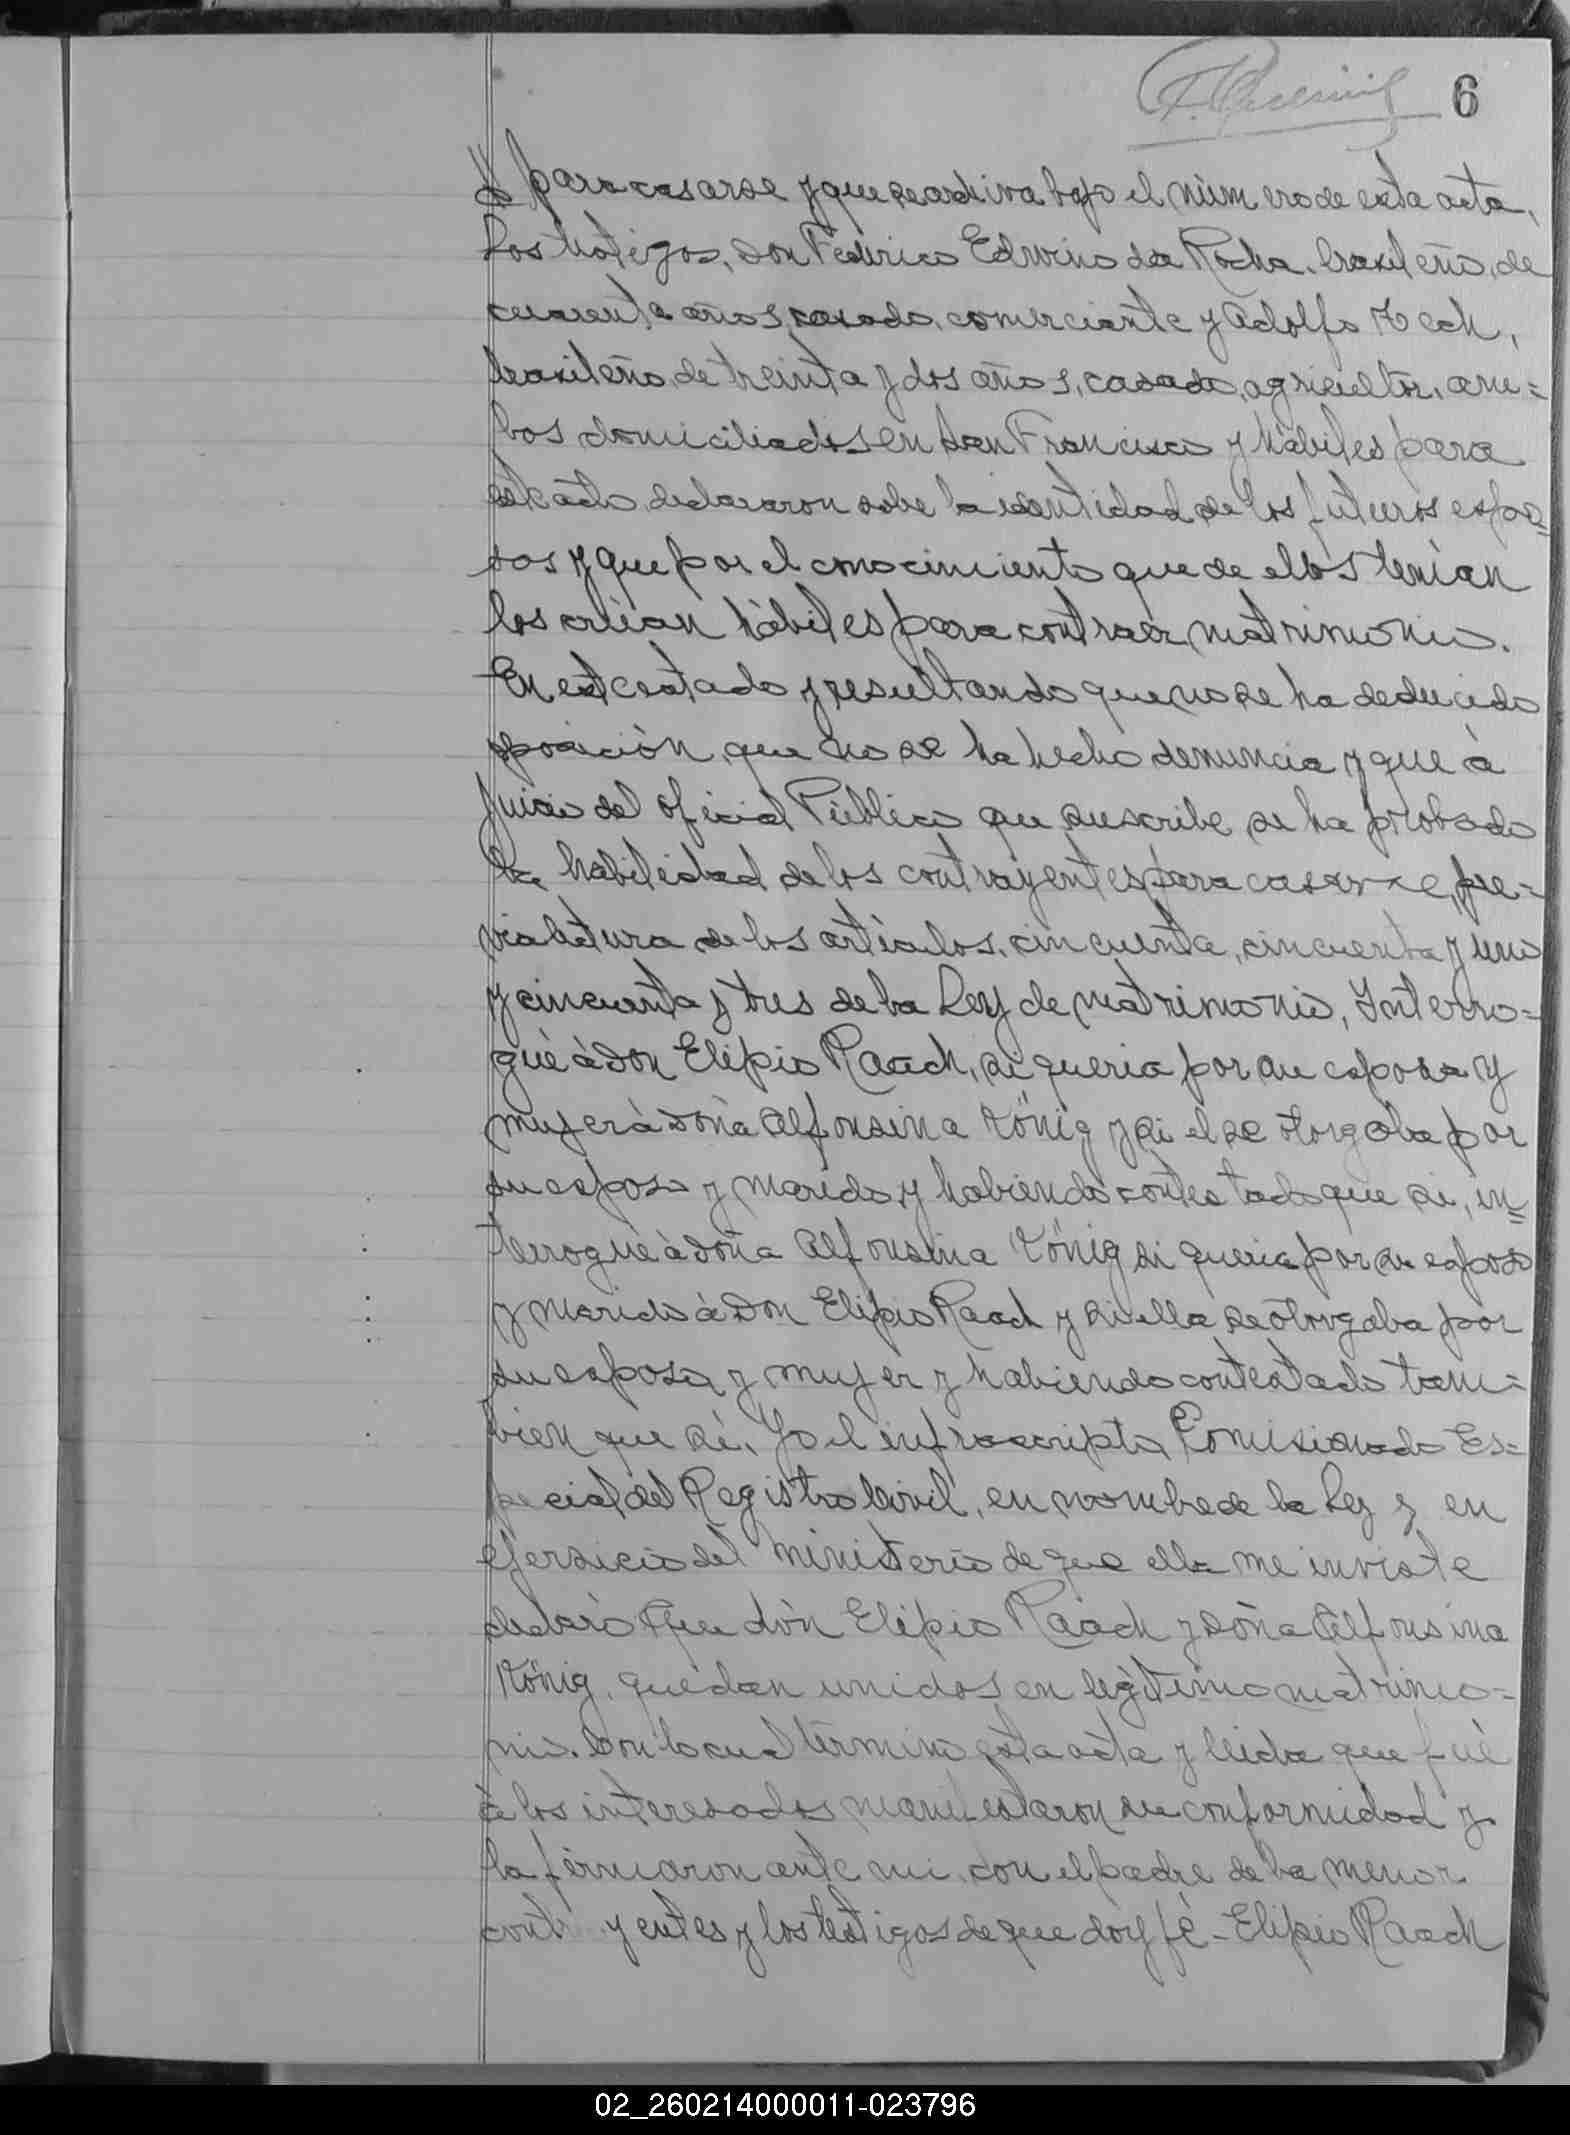 6
para casarse y que se archiva bajo el número de esta acta.
Los testigos, Don Federico Edvino da Rocha, brasileño, de
cuarenta años, casado, comerciante y Adolfo
brasileño, de treinta y dos años, casado, agricultor, am=
bos domiciliados en San Francisco y hábiles para
este acto, declararon sobre la identidad de los futuros espo=
sos y que por el conocimiento que de ellos tenían
los creían hábiles para contraer matrimonio.
En este estado y resultando que no se ha deducido
oposición, que no se ha hecho denuncia y que à
juicio del oficial Público que suscribe, se ha probado
la habilidad de los contrayentes para casarse, pre=
via letura de los artículos, cincuenta, cincuenta y uno
y cincuenta y tres de la Ley de matrimonio, Interro=
gué à Don Elipio Raach, si queria por su esposa y
mujer à Doña Alfonsina König y si el se otorgaba por
su esposo y marido y habiendo contestado que si, in=
terrogué à Doña Alfonsina König si queria por su esposo
y marido à Don Elipio Raach y si ella se otorgaba por
su esposa y mujer y habiendo contestado tam=
bien que sí, Yo el infrascripto Comisionado Es=
pecial del Registro Civil, en nombre de la Ley y en
ejersicio del ministerio de que ella me inviste
declaro que dón Elipio Raach y Doña Alfonsina
König, quedan unidos en legítimo matrimo=
nio. Con lo cual terminó esta acta y leida que fué
à los interesados manifestaron su conformidad y
la firmaron ante mi, con el padre de la menor
contr yentes y los testigos de que doy fé - Elipio Raach
02_260214000011-023796